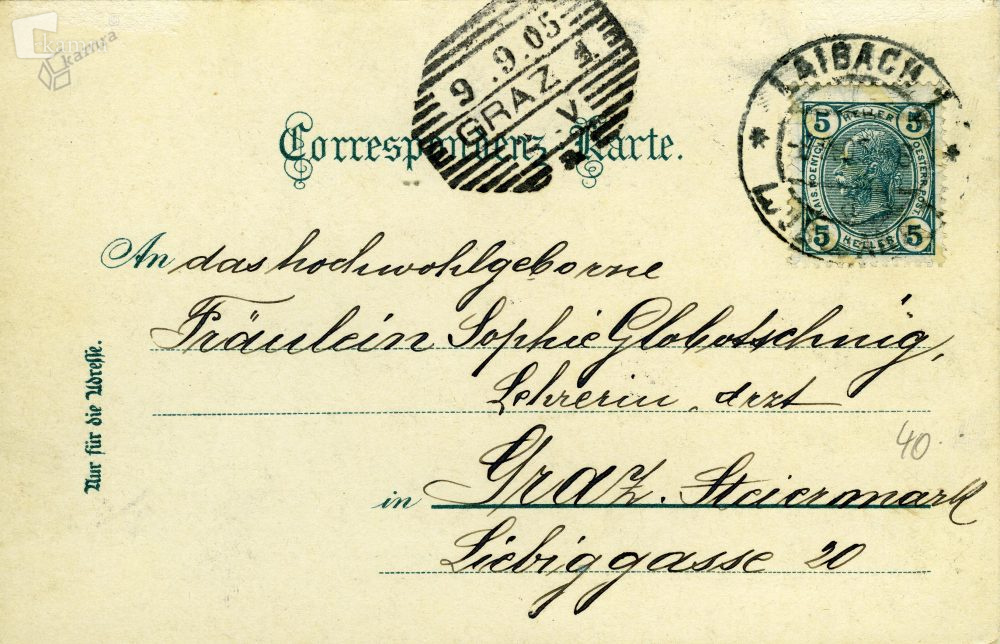 kamra
kamra
9.9.05
GRAZ 1
V
LAIBACH 1
5 HELLER 5
KAIS. KOENIGL. OESTERR. POST
5 HELLER 5
Correspondenz-Karte.
An das hochwohlgeborne
Fräulein Sophie Globotschnig,
Lehrerin, drzt
in Graz. Steiermark
Liebiggasse 20
40.
Nur für die Adresse.